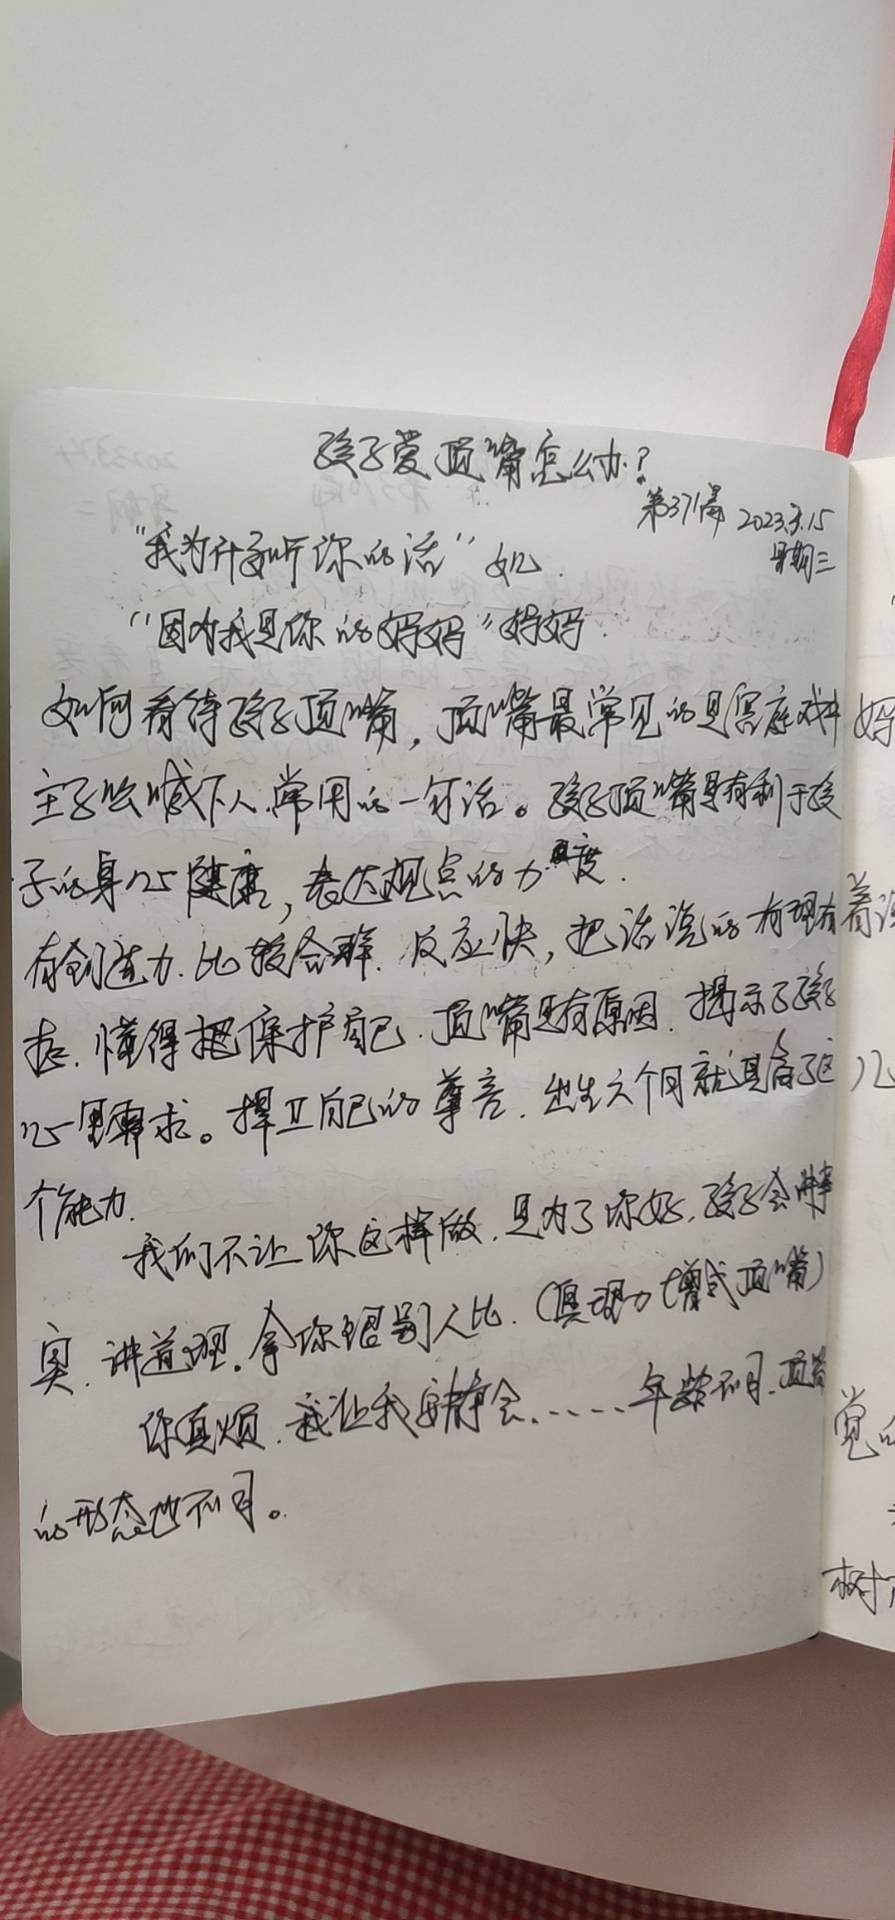 孩子爱顶嘴怎么办?
第371篇 2023.3.15
星期三
"我为什么要听你的话" 女儿
"因为我是你的妈妈" 妈妈.
如何看待孩子顶嘴,顶嘴最常见的是宫庭戏中
主子吆喊下人.常用的一句话。孩子顶嘴是有利于孩
子的身心健康,表达观点的力度.
有创造力.比较合群.反应快,把话说的有理有
据.懂得把保护自己.顶嘴是有原因.揭示了孩子
心里需求。捍卫自己的尊言.出生六个月就具备了这
个能力.
我们不让你这样做.是为了你好.孩子会讲事
实.讲道理.拿你跟别人比.(真理力增式顶嘴)
你真烦.我让我安静会......年龄不同.顶嘴
的形态也不同。